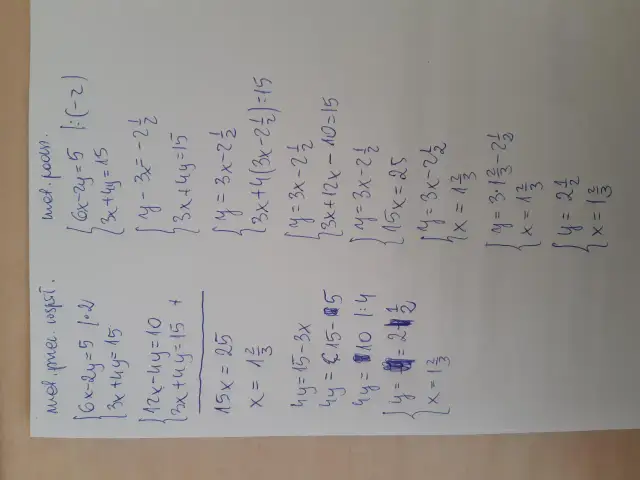 met. przec. współ.
{6x-2y=5 |·2
3x+4y=15
{12x-4y=10
3x+4y=15 +
15x=25
x=1 2/3
4y=15-3x
4y=15-5
4y=10 |:4
{y=2 1/2
x=1 2/3
met. podst.
{6x-2y=5 |:(-2)
3x+4y=15
{y-3x=-2 1/2
3x+4y=15
{y=3x-2 1/2
3x+4(3x-2 1/2)=15
{y=3x-2 1/2
3x+12x-10=15
{y=3x-2 1/2
15x=25
{y=3x-2 1/2
x=1 2/3
{y=3·1 2/3-2 1/2
x=1 2/3
{y=2 1/2
x=1 2/3